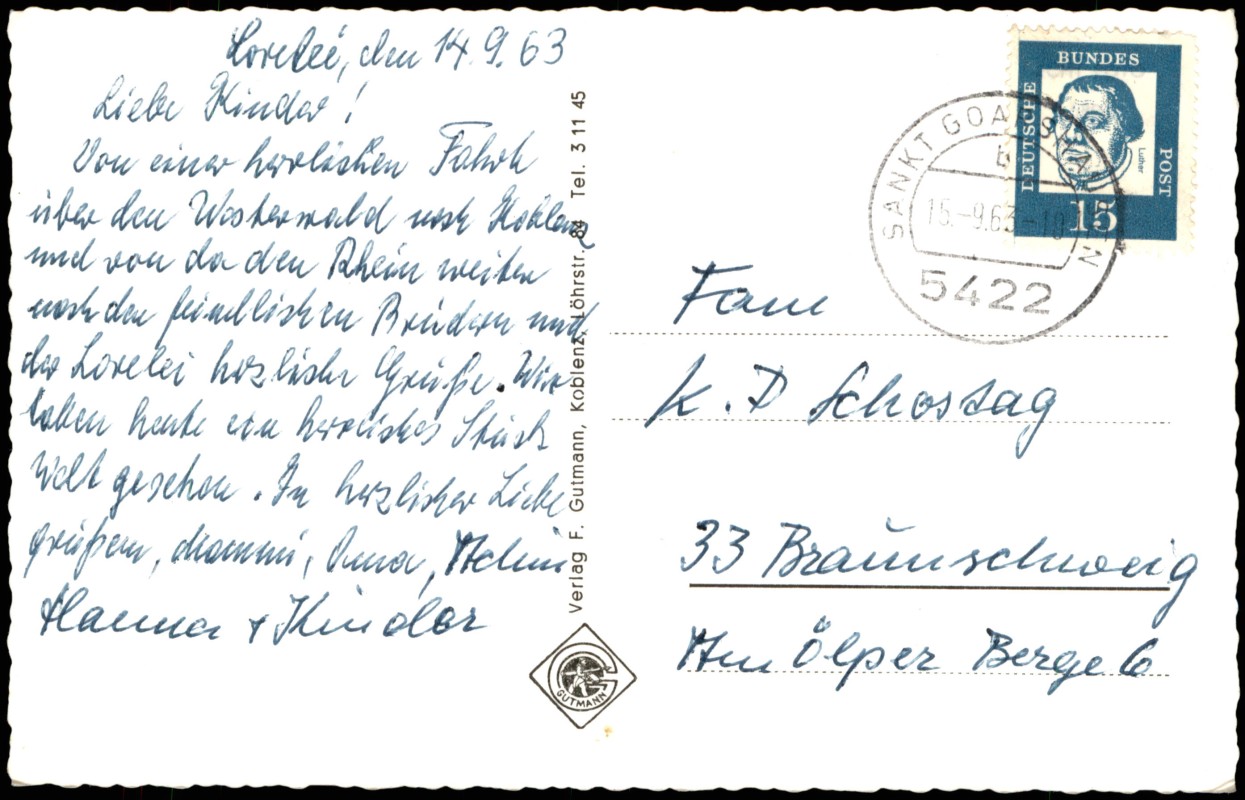 Lorelei, den 14.9.63
Liebe Kinder!
Von einer herrlichen Fahrt
über den Westerwald nach Koblenz
und von da den Rhein weiter
nach den feindlichen Brüdern und
der Lorelei herzliche Grüße. Wir
haben heute ein herrliches Stück
Welt gesehen. In herzlicher Liebe
grüßen, Mammi, Oma, Achim
Hanna + Kinder
Verlag F. Gutmann, Koblenz, Löhrstr. 84 Tel. 3 11 45
GUTMANN
DEUTSCHE
BUNDES
POST
Luther
15
SANKT GOARSHAUSEN
b
15.-9.63.-10
5422
Fam
K. D Schostag
33 Braunschweig
Am Ölper Berge 6